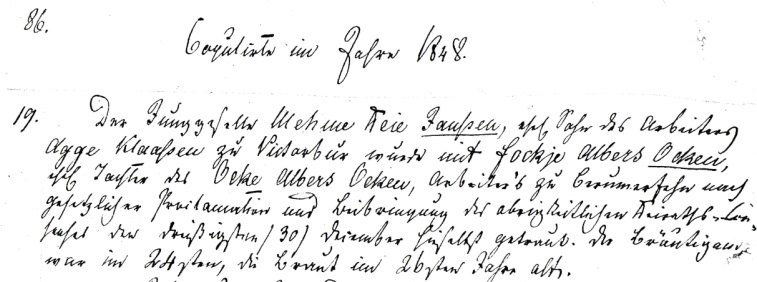 86.
Copulirte im Jahre 1848.
19. Der Junggeselle Mehme Heie Janßen, ehel. Sohn des Arbeiters
Agge Klaaßen zu Victorbur wurde mit Fookje Albers Ocken,
ehel. Tochter des Ocke Albers Ocken, Arbeiter's zu Berumerfehn nach
gesetzlicher Proclamation und Beibringung des obrigkeitlichen Heiraths-Con-
senses den dreißigsten (30) December hieselbst getraut. Der Bräutigam
war im 24sten, die Braut im 26sten Jahre alt.